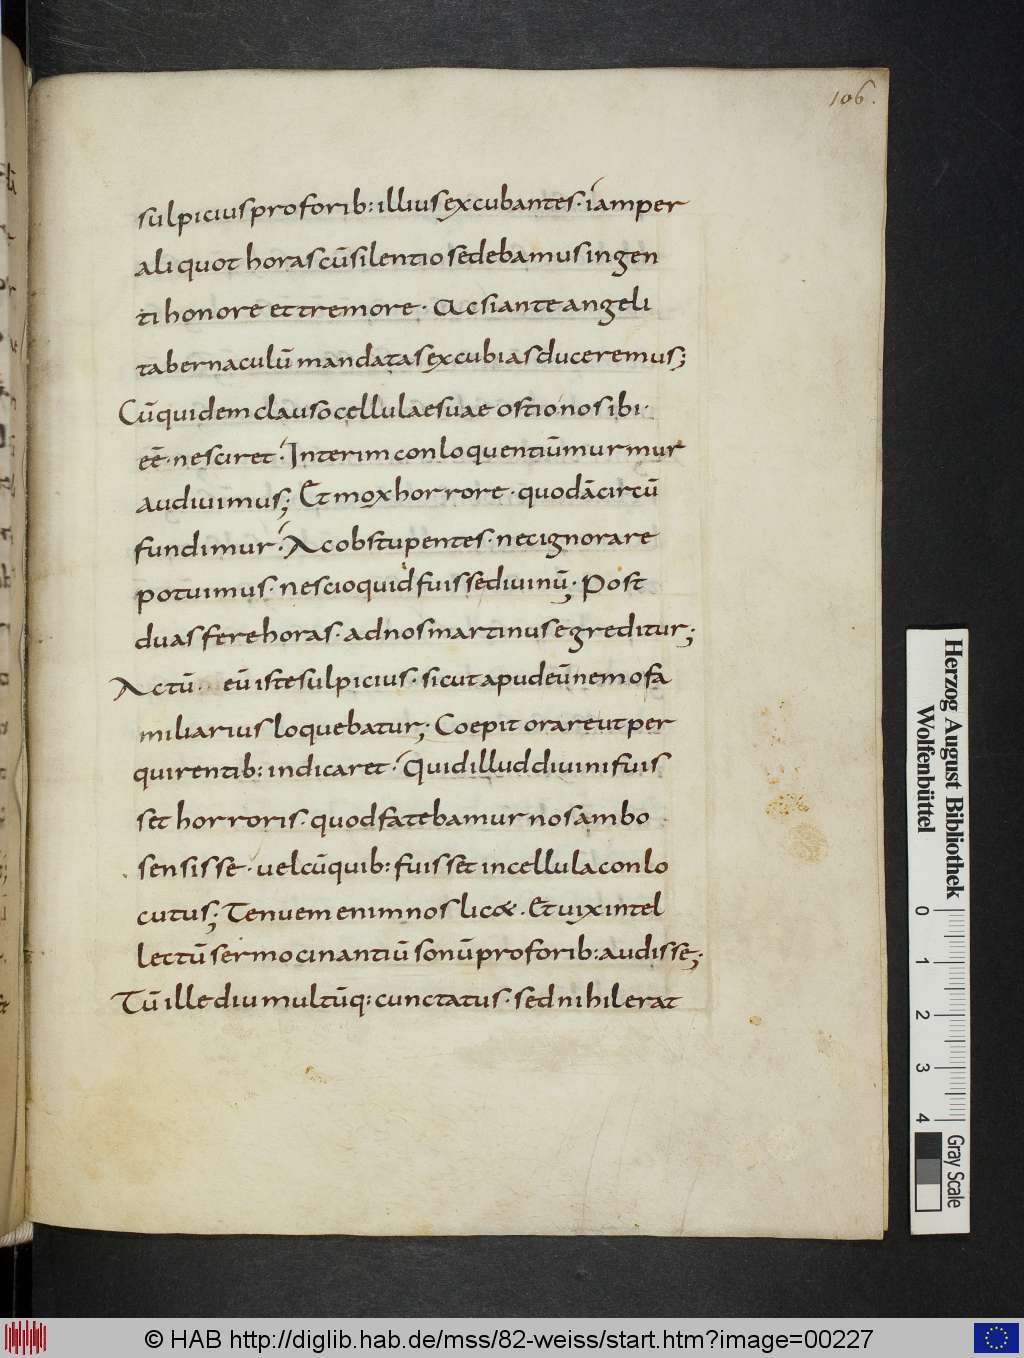 106.
sulpicius pro forib: illius excubantes· iam per
ali quot horas cū silentio sedebamus ingen
ti honore et tremore· Ac si ante angeli
tabernaculū mandatas excubias duceremus;
Cū quidem clauso cellulae suae ostio nos ibi·
eē· nesciret· Interim conloquentiū murmur
audiuimus; Et mox horrore· quodā circū
fundimur· Ac obstupentes· nec ignorare
potuimus· nescio quid fuisse diuinū; Post
duas fere horas· ad nos martinus egreditur;
Ac tū· eū iste sulpicius· sicut apud eū nemo fa
miliarius loquebatur; Coepit orare ut per
quirentib: indicaret· Quid illud diuini fuis
set horroris· quod fatebamur nos ambo
sensisse· uel cū quib: fuisset in cellula conlo
cutus; Tenuem enim nos lic&· Et uix intel
lectū sermocinantiū sonū pro forib: audisse;
Tū ille diu multūq: cunctatus· sed nihil erat
Herzog August Bibliothek
Wolfenbüttel
0 1 2 3 4
Gray Scale
© HAB http://diglib.hab.de/mss/82-weiss/start.htm?image=00227